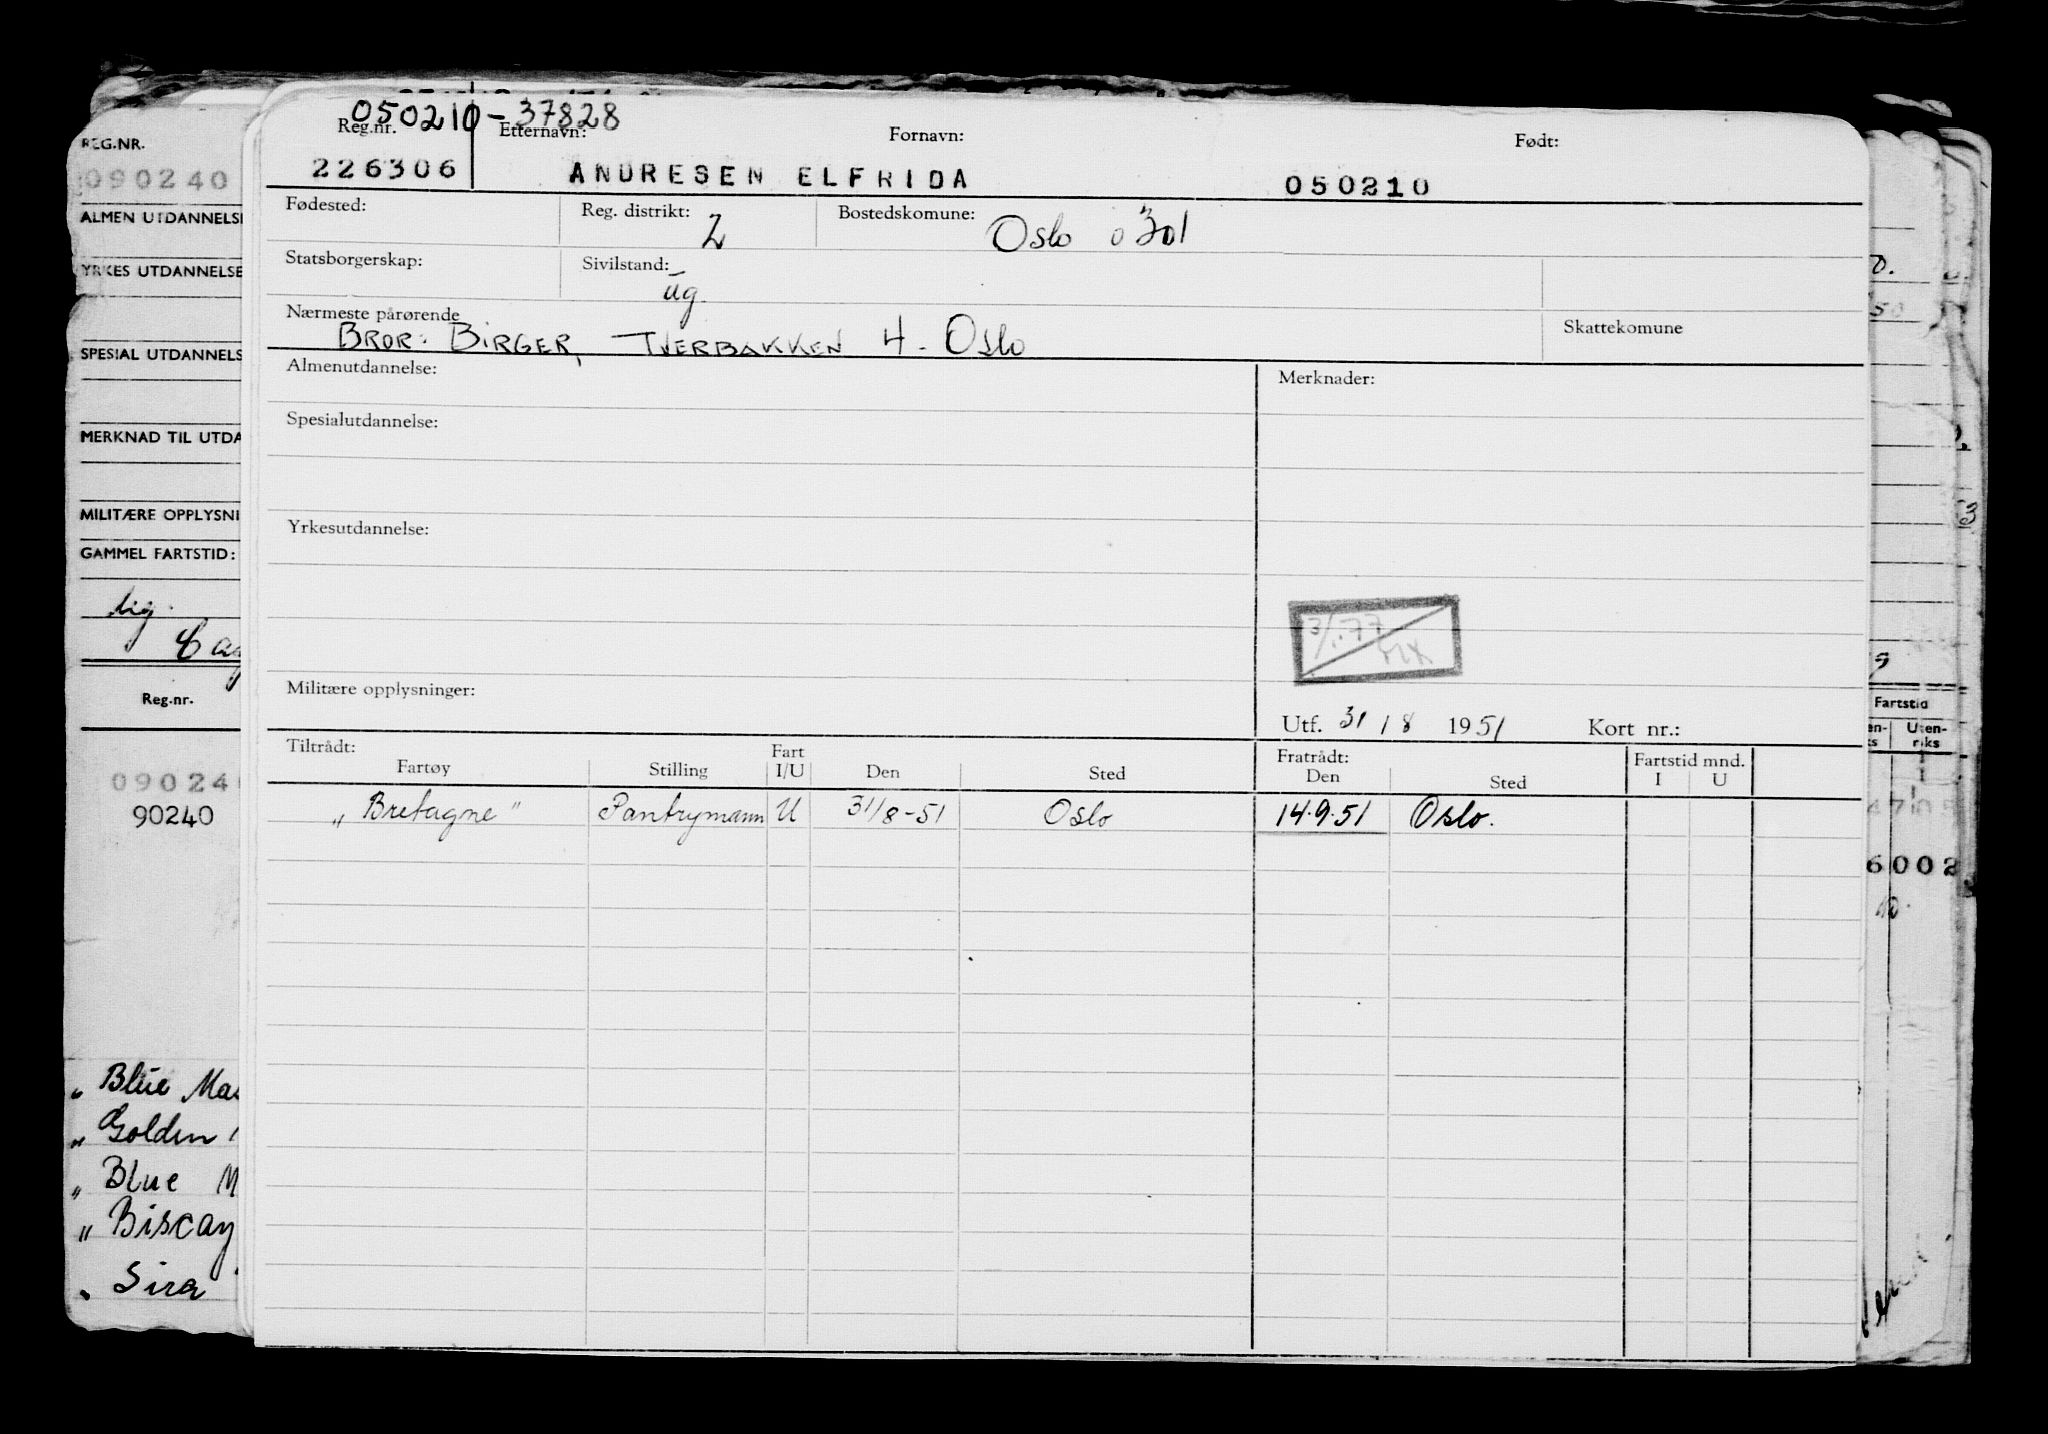 050210-37828
Reg.nr. Etternavn: Fornavn: Født:
226306 ANDRESEN ELFRIDA 050210
Fødested: Reg. distrikt: 2 Bostedskomune: Oslo 0301
Statsborgerskap: Sivilstand: ug.
Nærmeste pårørende Skattekomune
BROR: BIRGER, TVERBAKKEN 4 - Oslo
Almenutdannelse: Merknader:
Spesialutdannelse:
Yrkesutdannelse:
Militære opplysninger:
Utf. 31/8 1951 Kort nr.:
Tiltrådt: Fart Fratrådt: Fartstid mnd.
Fartøy Stilling I/U Den Sted Den Sted I U
„Bretagne" Pantrymann U 31/8-51 Oslo 14.9.51 Oslo.
REG.NR.
090240
ALMEN UTDANNELSE
YRKES UTDANNELSE
SPESIAL UTDANNELS
MERKNAD TIL UTDA
MILITÆRE OPPLYSNI
GAMMEL FARTSTID:
Reg.nr.
09024
90240
„ Blue Mas
„ Golden
„ Blue M
„ Biscay
„ Sira
Fartstid
en-ks Uten-riks
6002